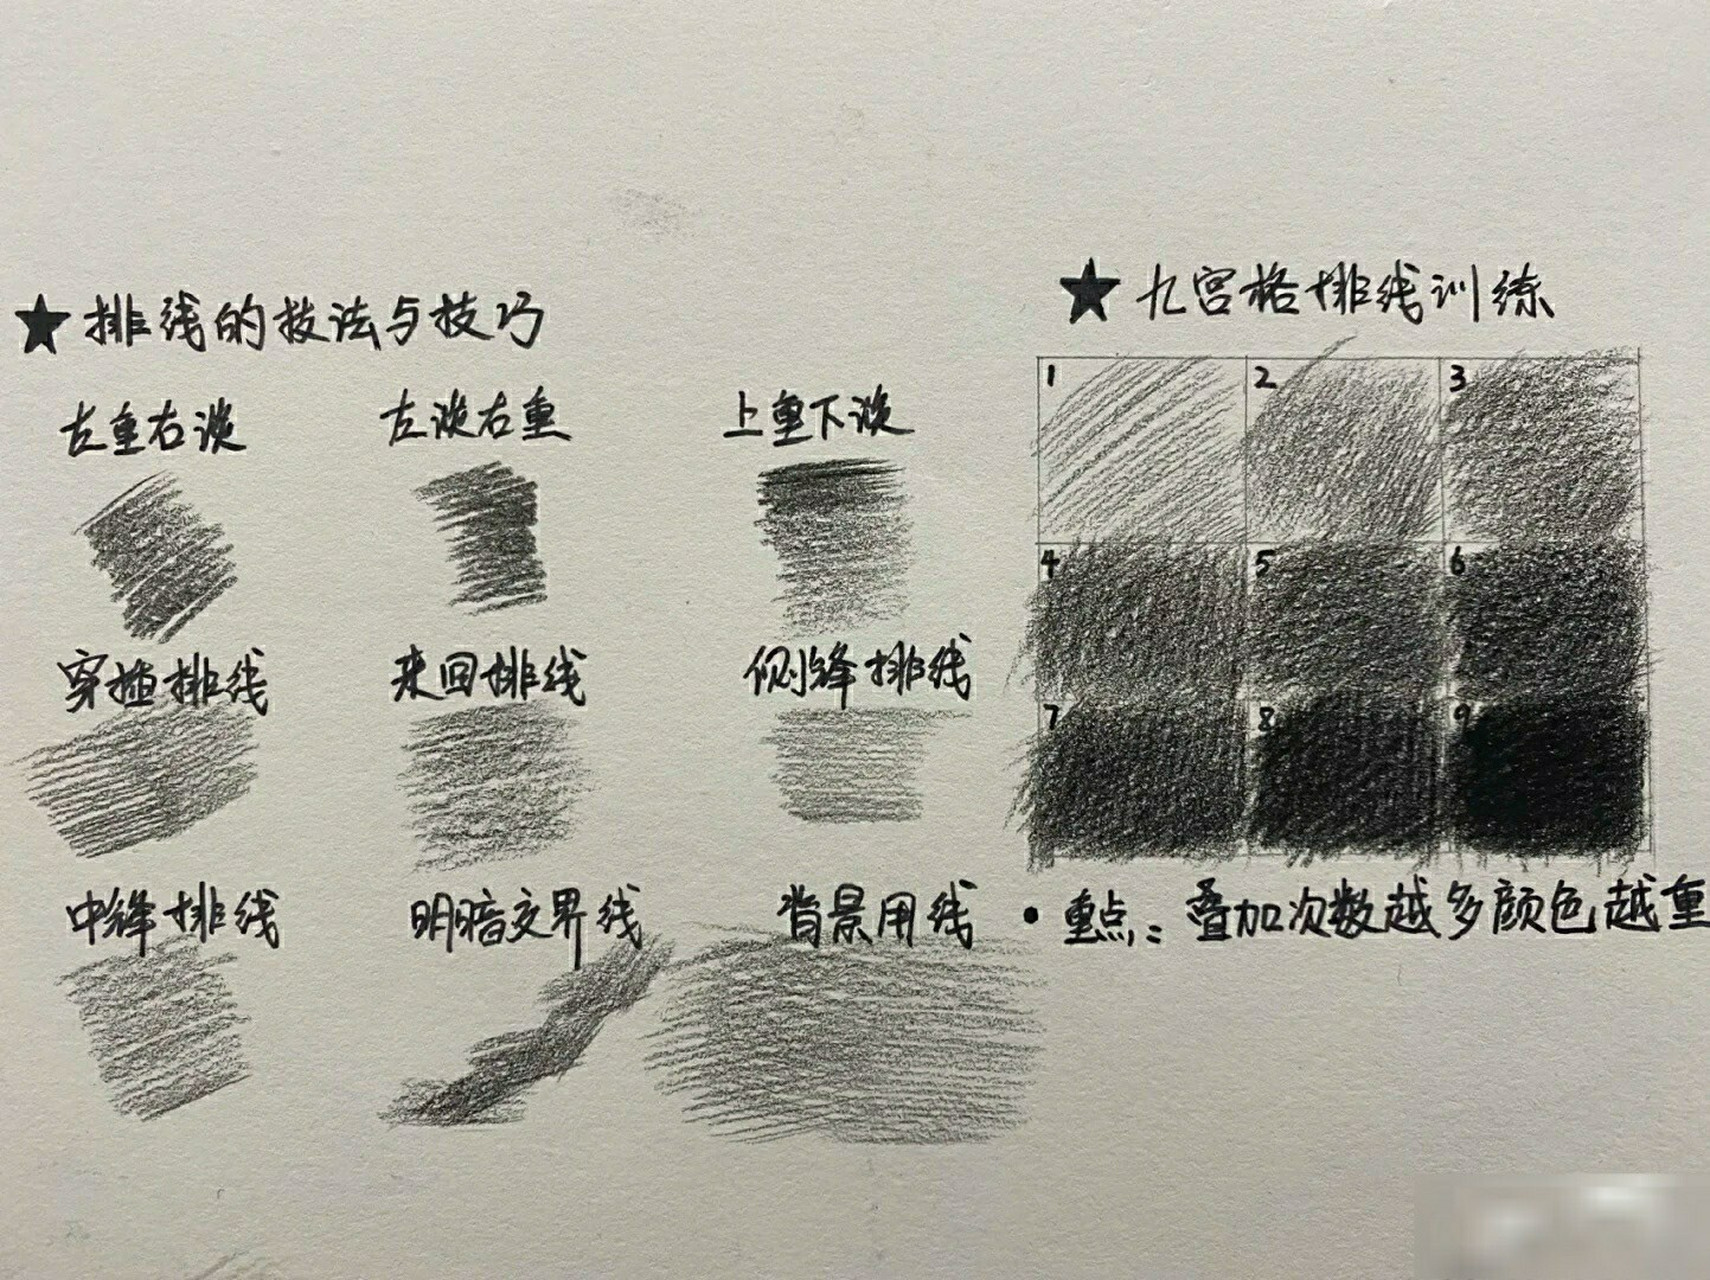 ★排线的技法与技巧
左重右淡 左淡右重 上重下淡
穿插排线 来回排线 侧锋排线
中锋排线 明暗交界线 背景用线
★九宫格排线训练
1 2 3
4 5 6
7 8 9
•重点:叠加次数越多颜色越重